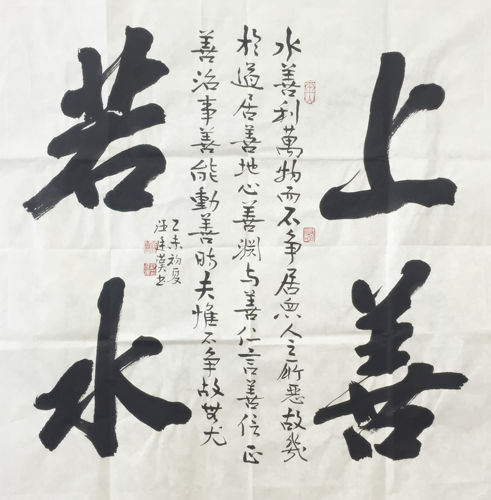 上善
水善利萬物而不争居眾人之所惡故幾
於道居善地心善淵与善仁言善信正
善治事善能動善時夫惟不争故無尤
乙未初夏
书
若水